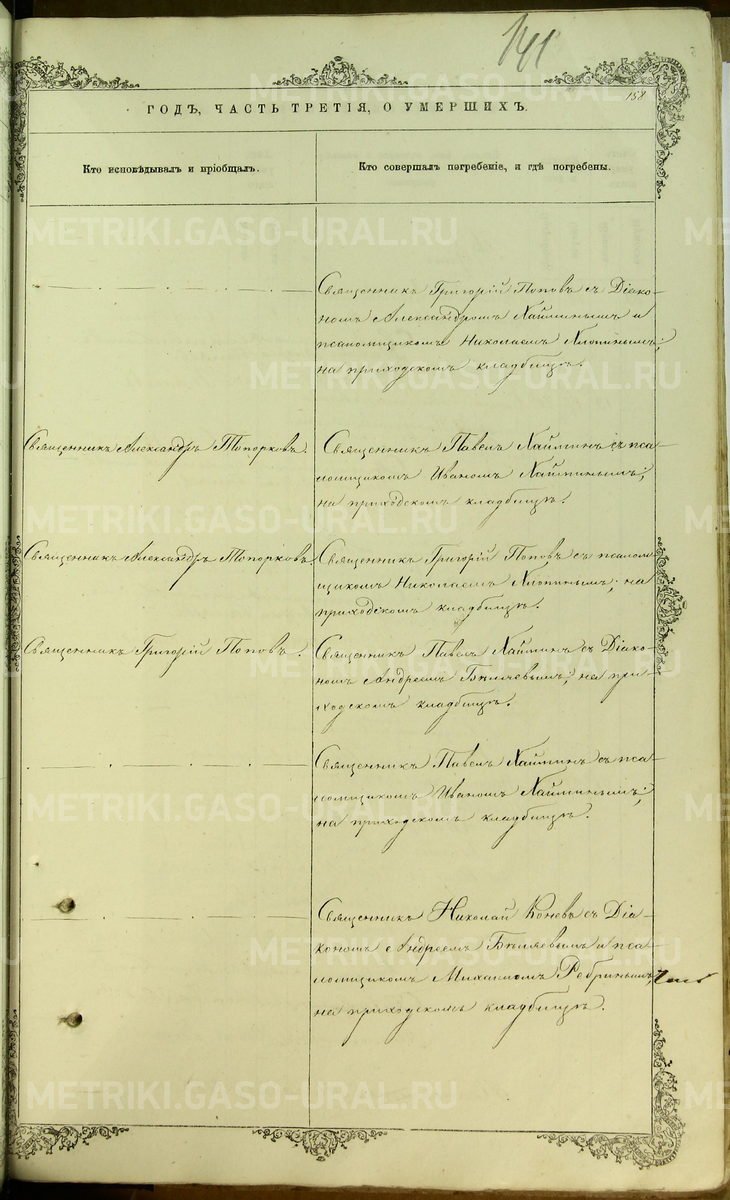 141
158
ГОДЪ, ЧАСТЬ ТРЕТІЯ, О УМЕРШИХЪ.
Кто исповѣдывалъ и пріобщалъ.
Кто совершалъ погребеніе, и гдѣ погребены.
Священникъ Григорій Поповъ съ Діако-
номъ Александромъ Хайминымъ и
псаломщикомъ Николаемъ Хлопинымъ;
на приходскомъ кладбищѣ.
Священникъ Александръ Топорковъ.
Священникъ Павелъ Хайминъ съ пса-
ломщикомъ Иваномъ Хайминымъ;
на приходскомъ кладбищѣ.
Священникъ Александръ Топорковъ.
Священникъ Григорій Поповъ съ псалом-
щикомъ Николаемъ Хлопинымъ; на
приходскомъ кладбищѣ.
Священникъ Григорій Поповъ.
Священникъ Павелъ Хайминъ съ Діако-
номъ Андреемъ Бѣляевымъ; на при-
ходскомъ кладбищѣ.
Священникъ Павелъ Хайминъ съ пса-
ломщикомъ Иваномъ Хайминымъ;
на приходскомъ кладбищѣ.
Священникъ Николай Коневъ съ Діа-
кономъ Андреемъ Бѣляевымъ и пса-
ломщикомъ Михаиломъ Ребринымъ;
на приходскомъ кладбищѣ.
METRIKI.GASO-URAL.RU